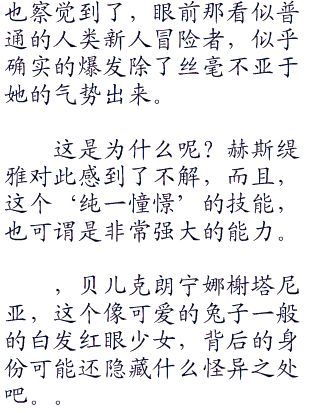 也察觉到了，眼前那看似普
通的人类新人冒险者，似乎
确实的爆发除了丝毫不亚于
她的气势出来。
这是为什么呢？赫斯缇
雅对此感到了不解，而且，
这个‘纯一憧憬’的技能，
也可谓是非常强大的能力。
，贝儿克朗宁娜榭塔尼
亚，这个像可爱的兔子一般
的白发红眼少女，背后的身
份可能还隐藏什么怪异之处
吧。。